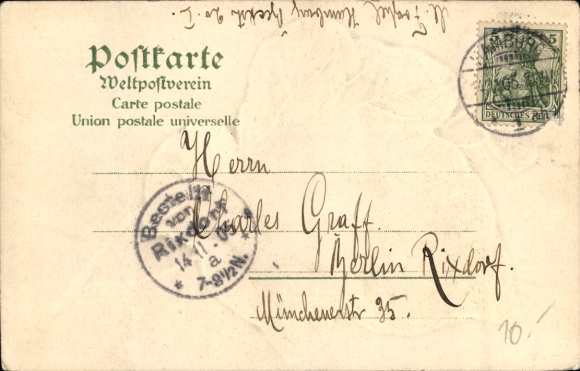 Hamburg
5
HAMBURG
1
DEUTSCHES REICH
Postkarte
Weltpostverein
Carte postale
Union postale universelle
Herrn
Charles Graff.
Berlin Rixdorf.
Münchenerstr 35.
Bestellt
vom
Rixdorf
14.11.
a
* 7-8½N. *
10.-